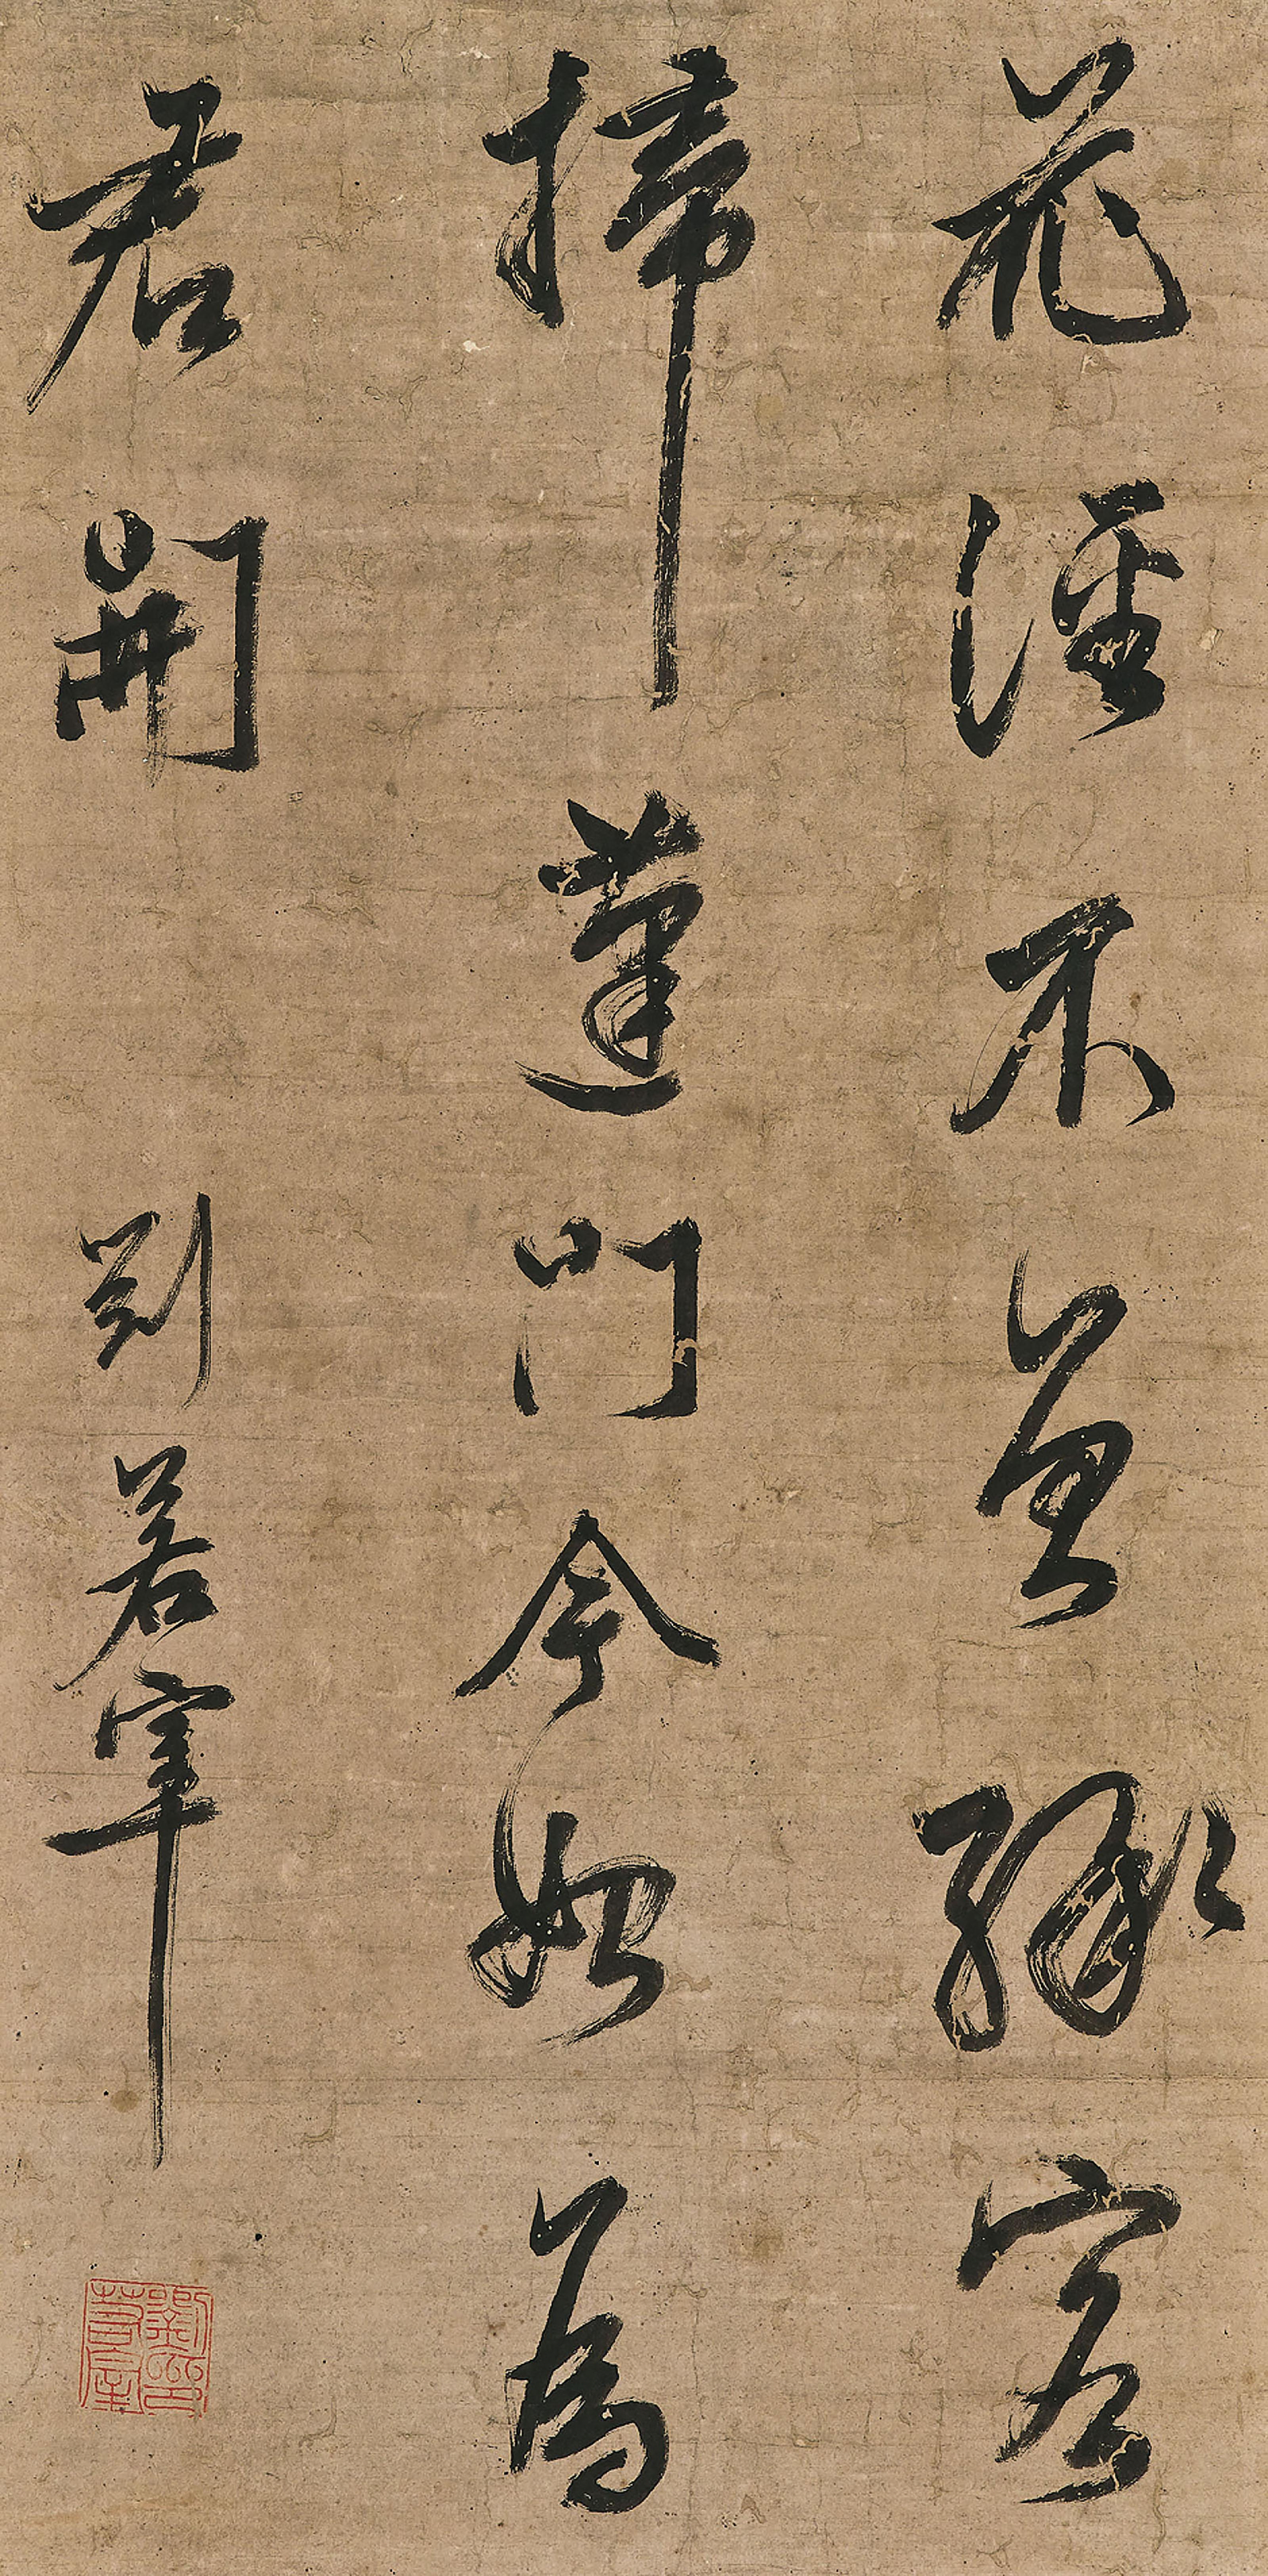 花径不曾緣客
掃蓬門今始為
君開
劉若宰
劉若宰印